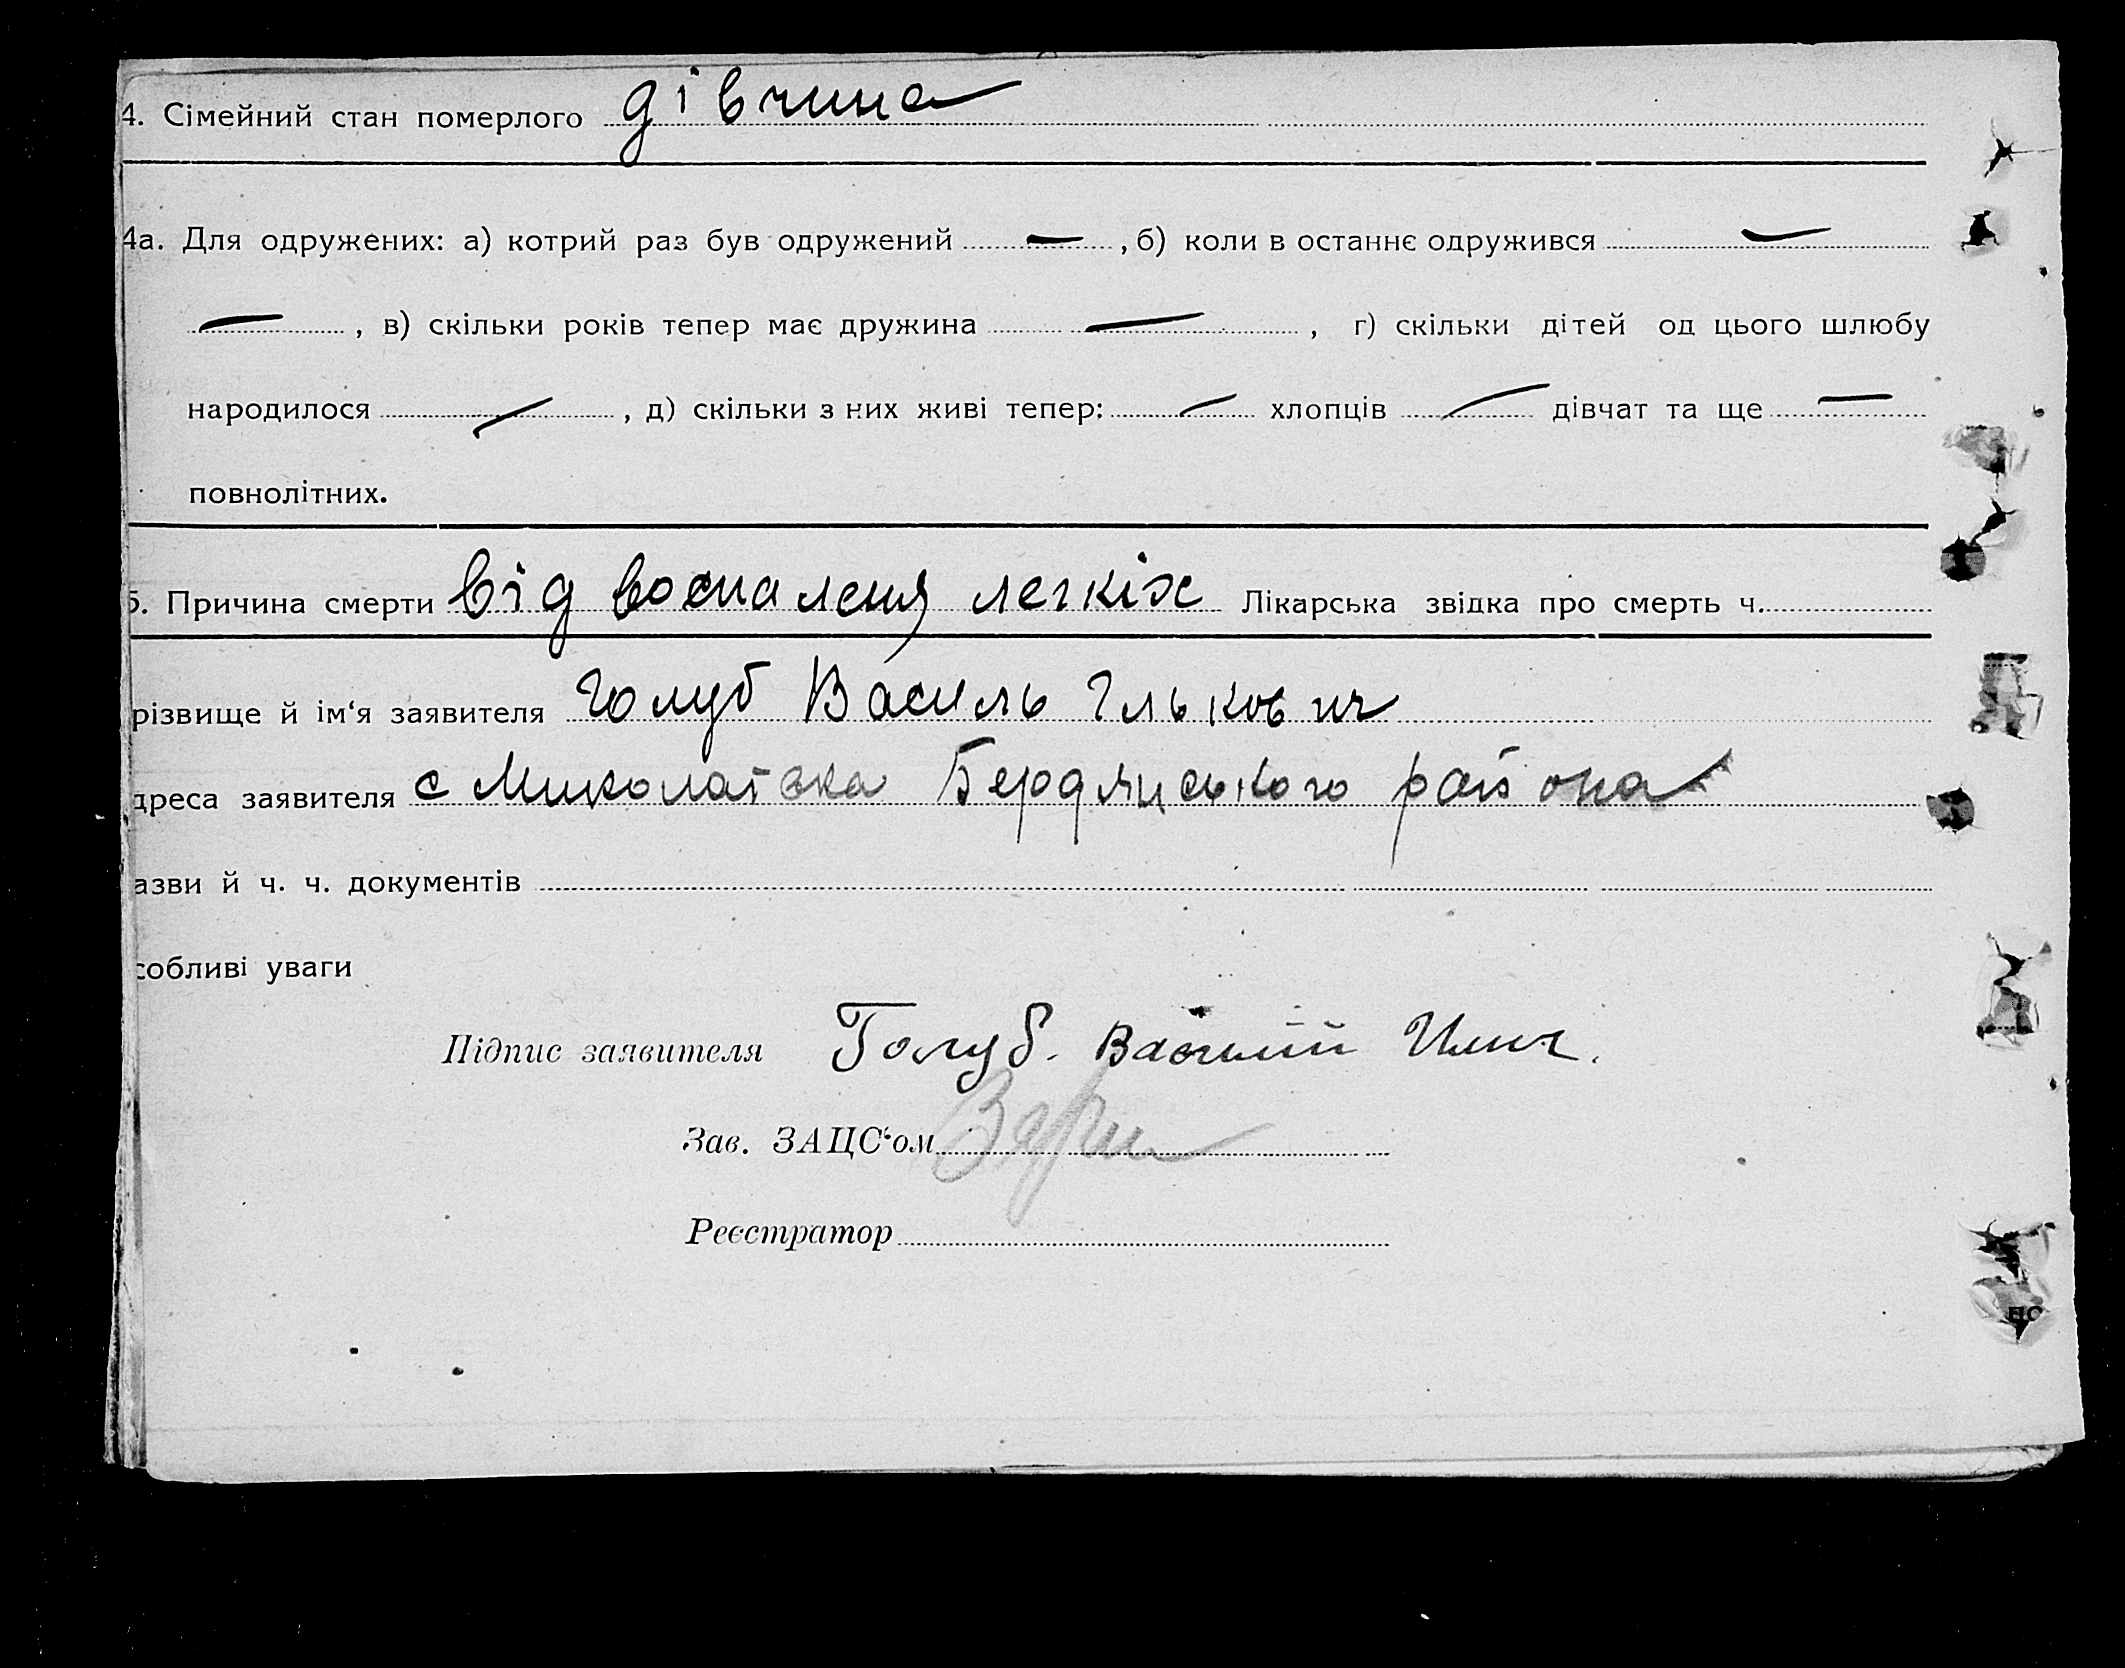 4. Сімейний стан померлого дівчина
4а. Для одружених: а) котрий раз був одружений —, б) коли в останнє одружився —
—, в) скільки років тепер має дружина —, г) скільки дітей од цього шлюбу
народилося —, д) скільки з них живі тепер: — хлопців — дівчат та ще —
повнолітних.
5. Причина смерти від воспаленя легкіх Лікарська звідка про смерть ч.
різвище й ім‘я заявителя Голуб Василь Ількович
дреса заявителя с Миколаївка Бердянського района
азви й ч. ч. документів
собливі уваги
Підпис заявителя Голуб. Василій Илич.
Зав. ЗАЦС‘ом
Реєстратор